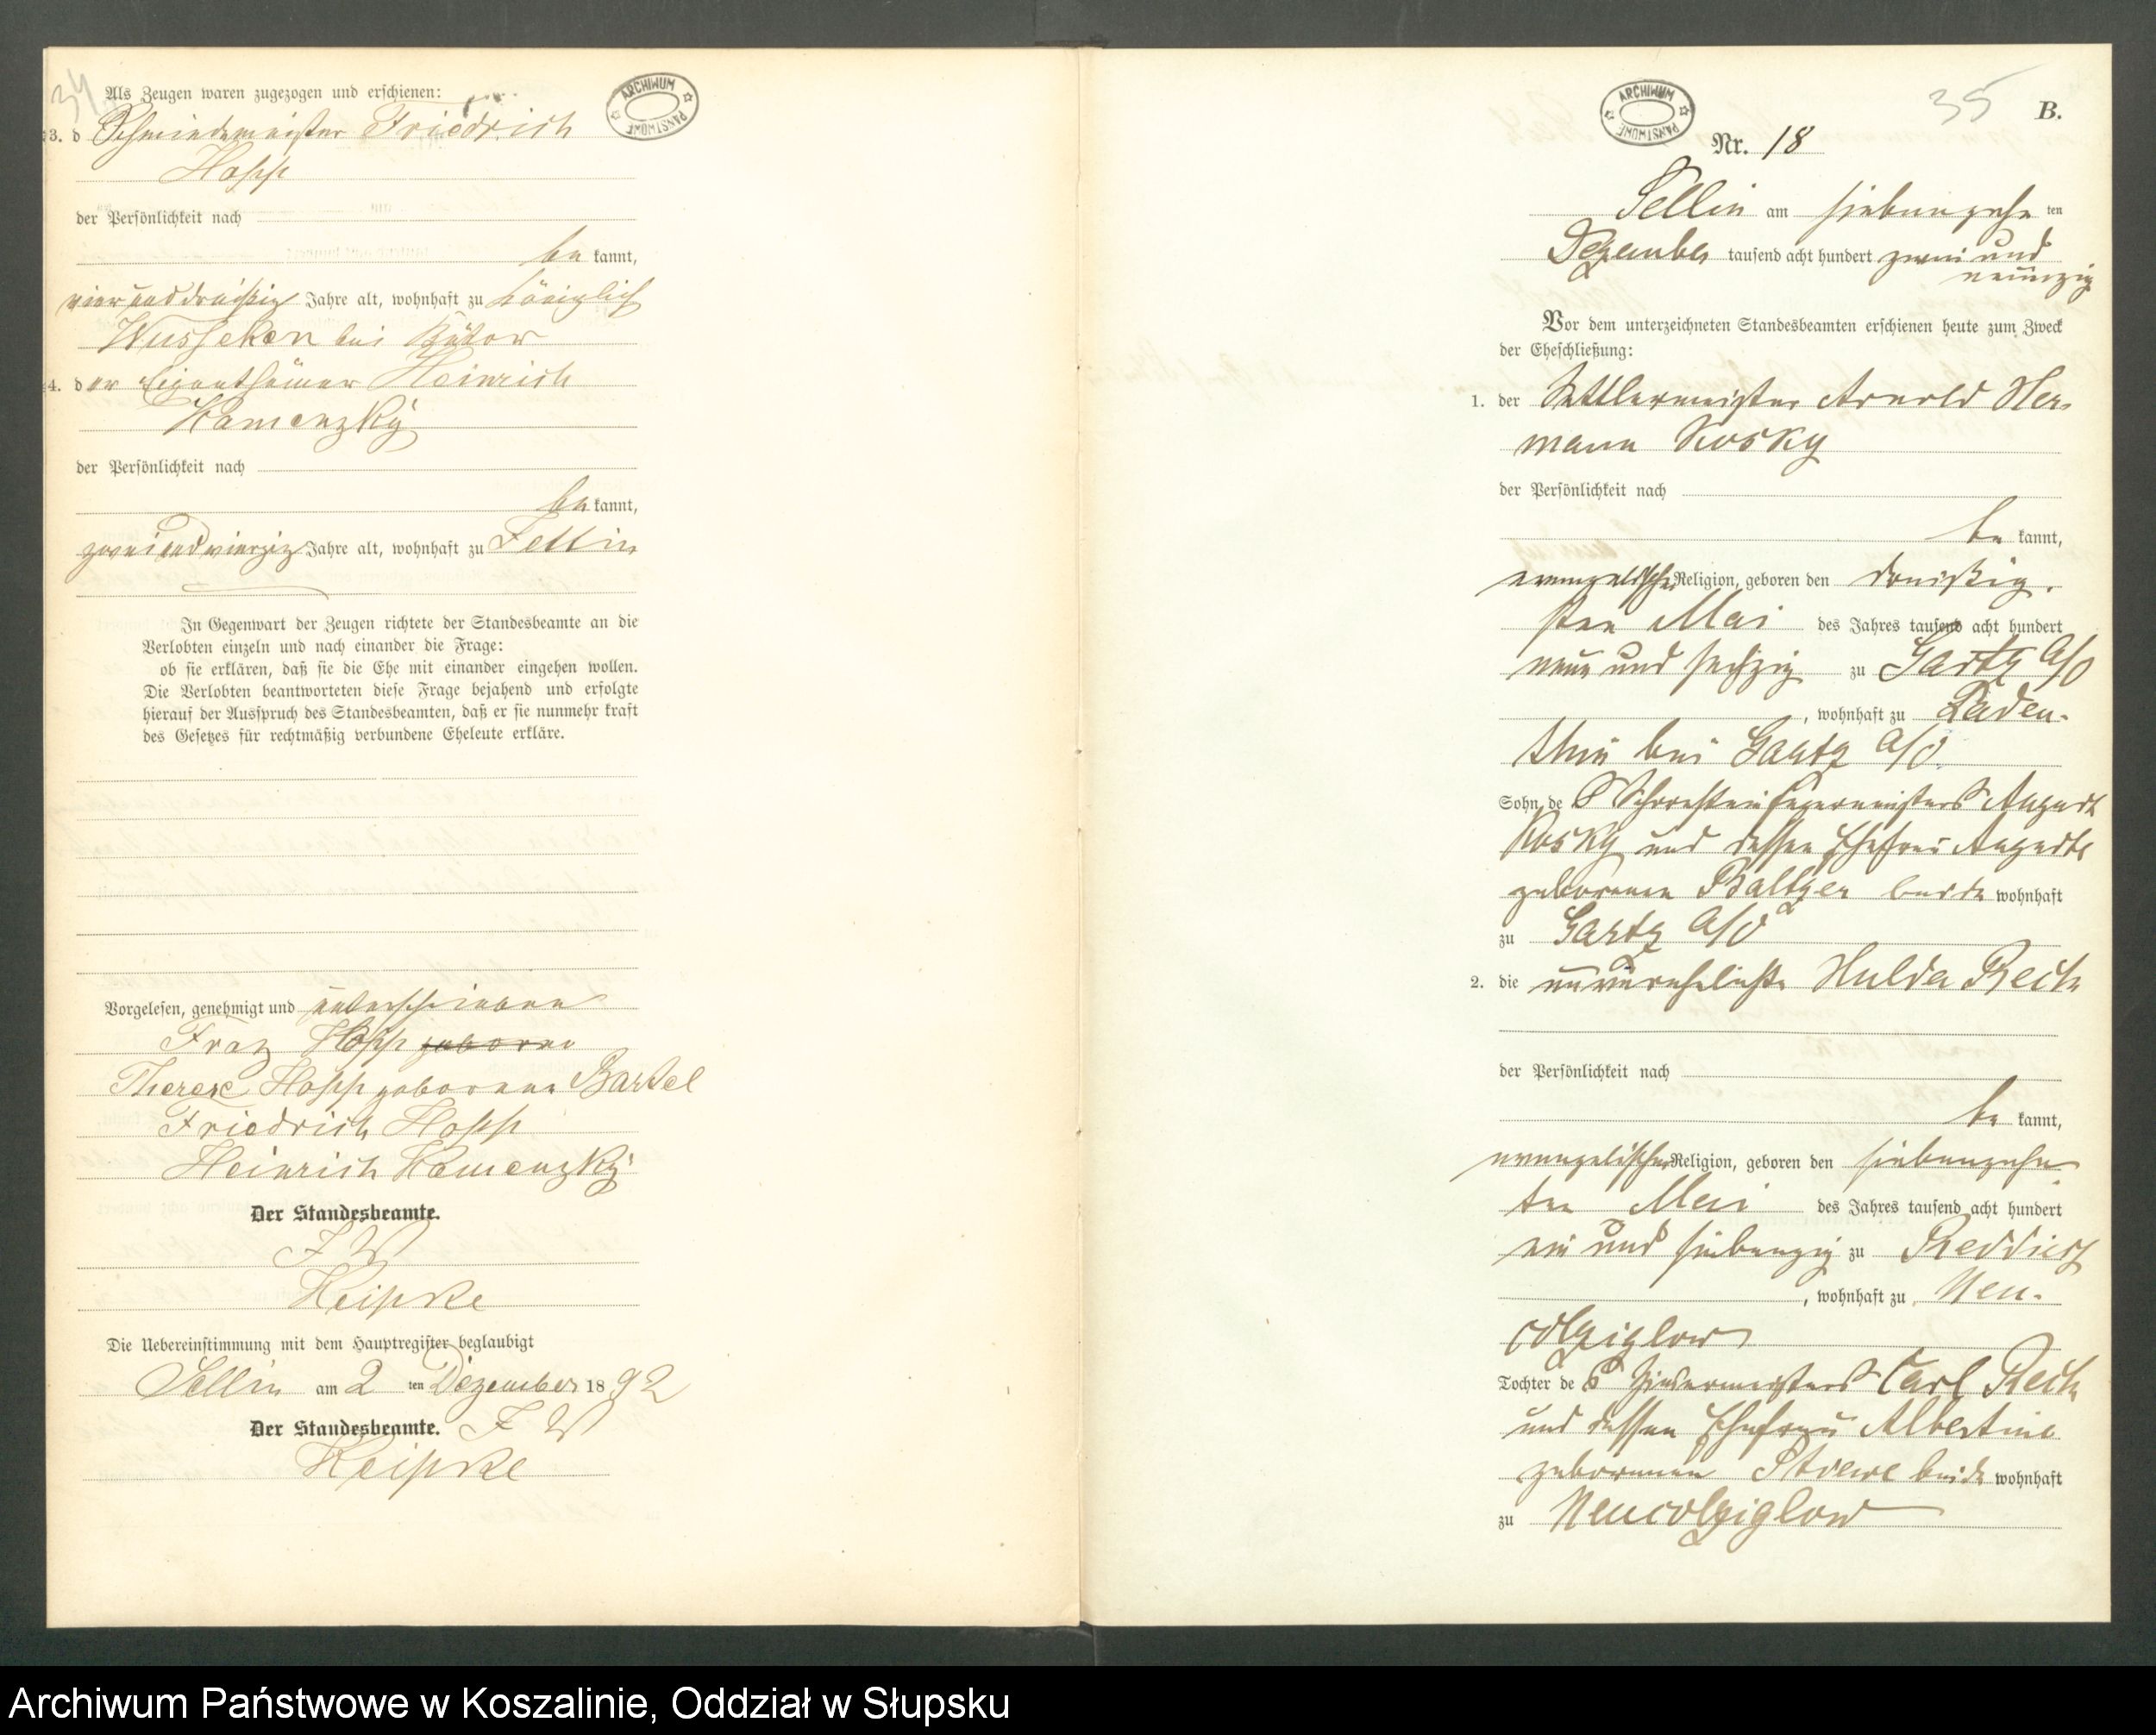 34
Als Zeugen waren zugezogen und erschienen:
ARCHIWUM PAŃSTWOWE
3. d Schmiedemeister Friedrich
Hopp
der Persönlichkeit nach
be kannt,
vier und dreißig Jahre alt, wohnhaft zu Königlich
Wusseken bei Bütow
4. der Eigenthümer Heinrich
Kamenzky
der Persönlichkeit nach
be kannt,
zwei und vierzig Jahre alt, wohnhaft zu Sellin
In Gegenwart der Zeugen richtete der Standesbeamte an die
Verlobten einzeln und nach einander die Frage:
ob sie erklären, daß sie die Ehe mit einander eingehen wollen.
Die Verlobten beantworteten diese Frage bejahend und erfolgte
hierauf der Ausspruch des Standesbeamten, daß er sie nunmehr kraft
des Gesetzes für rechtmäßig verbundene Eheleute erkläre.
Vorgelesen, genehmigt und unterschrieben
Franz Hopp geboren
Therese Hopp geborene Bartel
Friedrich Hopp
Heinrich Kamenzky
Der Standesbeamte.
J W
Heipke
Die Uebereinstimmung mit dem Hauptregister beglaubigt
Sellin am 2 ten Dezember 1892
Der Standesbeamte. J W
Heipke
ARCHIWUM PAŃSTWOWE
35 B.
Nr. 18
Sellin am siebenzehn ten
Dezember tausend acht hundert zwei und
neunzig
Vor dem unterzeichneten Standesbeamten erschienen heute zum Zweck
der Eheschließung:
1. der Sattlermeister Arnold Her
mann Kosky
der Persönlichkeit nach
be kannt,
evangelischer Religion, geboren den dreißig.
sten Mai des Jahres tausend acht hundert
neun und sechzig zu Gartz a/O
, wohnhaft zu Laden-
thin bei Gartz a/O.
Sohn des Schornsteinfegermeisters August
Kosky und dessen Ehefrau Auguste
geborenen Baltzer beide wohnhaft
zu Gartz a/O
2. die unverehelichte Hulda Rech
der Persönlichkeit nach
be kannt,
evangelischer Religion, geboren den siebenzehn
ten Mai des Jahres tausend acht hundert
ein und siebenzig zu Reddies
, wohnhaft zu Neu-
colziglow
Tochter des Zieglermeisters Carl Rech
und dessen Ehefrau Albertine
geborenen Strewe beide wohnhaft
zu Neucolziglow
Archiwum Państwowe w Koszalinie, Oddział w Słupsku